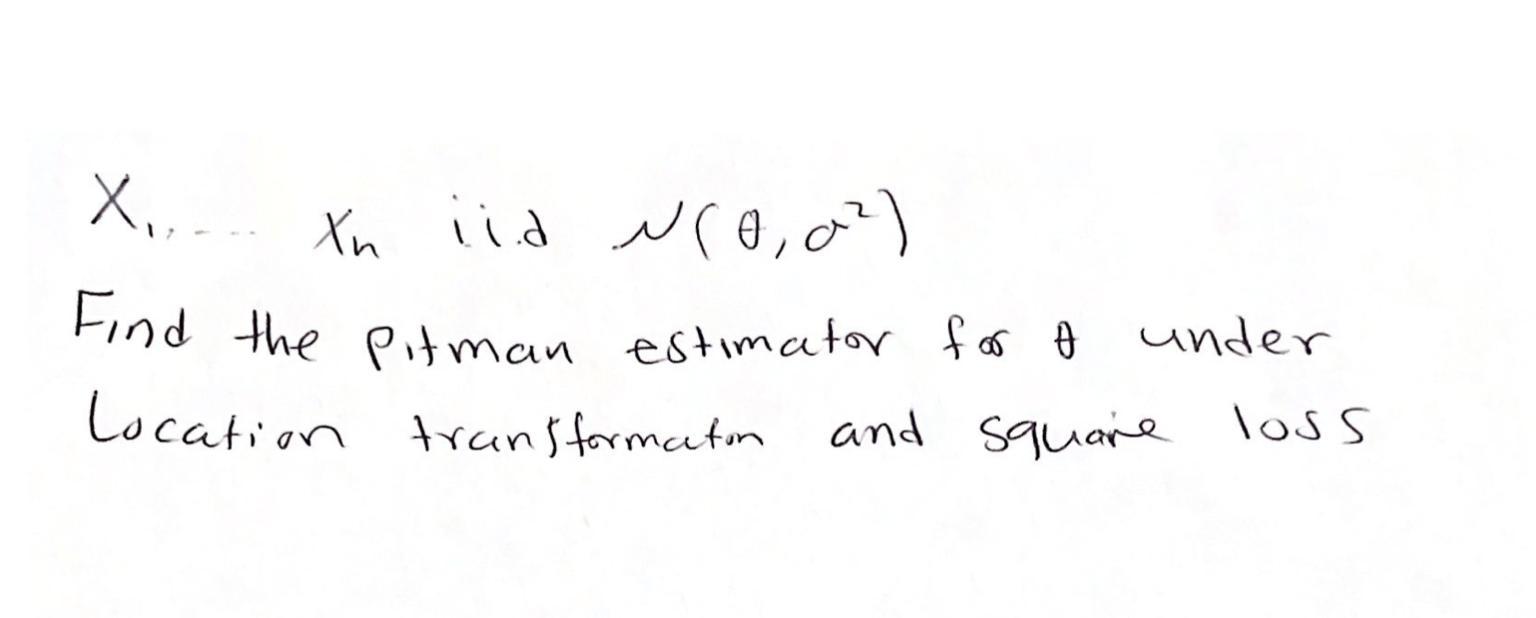 X₁,.... Xn iid N(θ,σ²)
Find the pitman estimator for θ under
Location transformaton and square loss